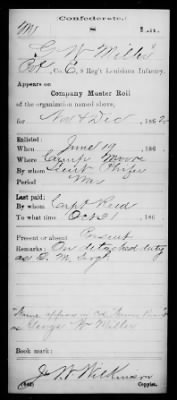 Confederate.
M 8 La.
G W Miller
Pvt, Co. E, 8 Reg't Louisiana Infantry.
Appears on
Company Muster Roll
of the organization named above,
for Nov & Dec, 186
Enlisted:
When June 19, 186
Where Camp Moore
By whom Lieut
Period War
Last paid:
By whom Capt Reid
To what time Oct 31, 186
Present or absent Present
Remarks: On detached duty
as
Name appears in
as George W Miller
Book mark:
J W Wilkinson
Copyist.